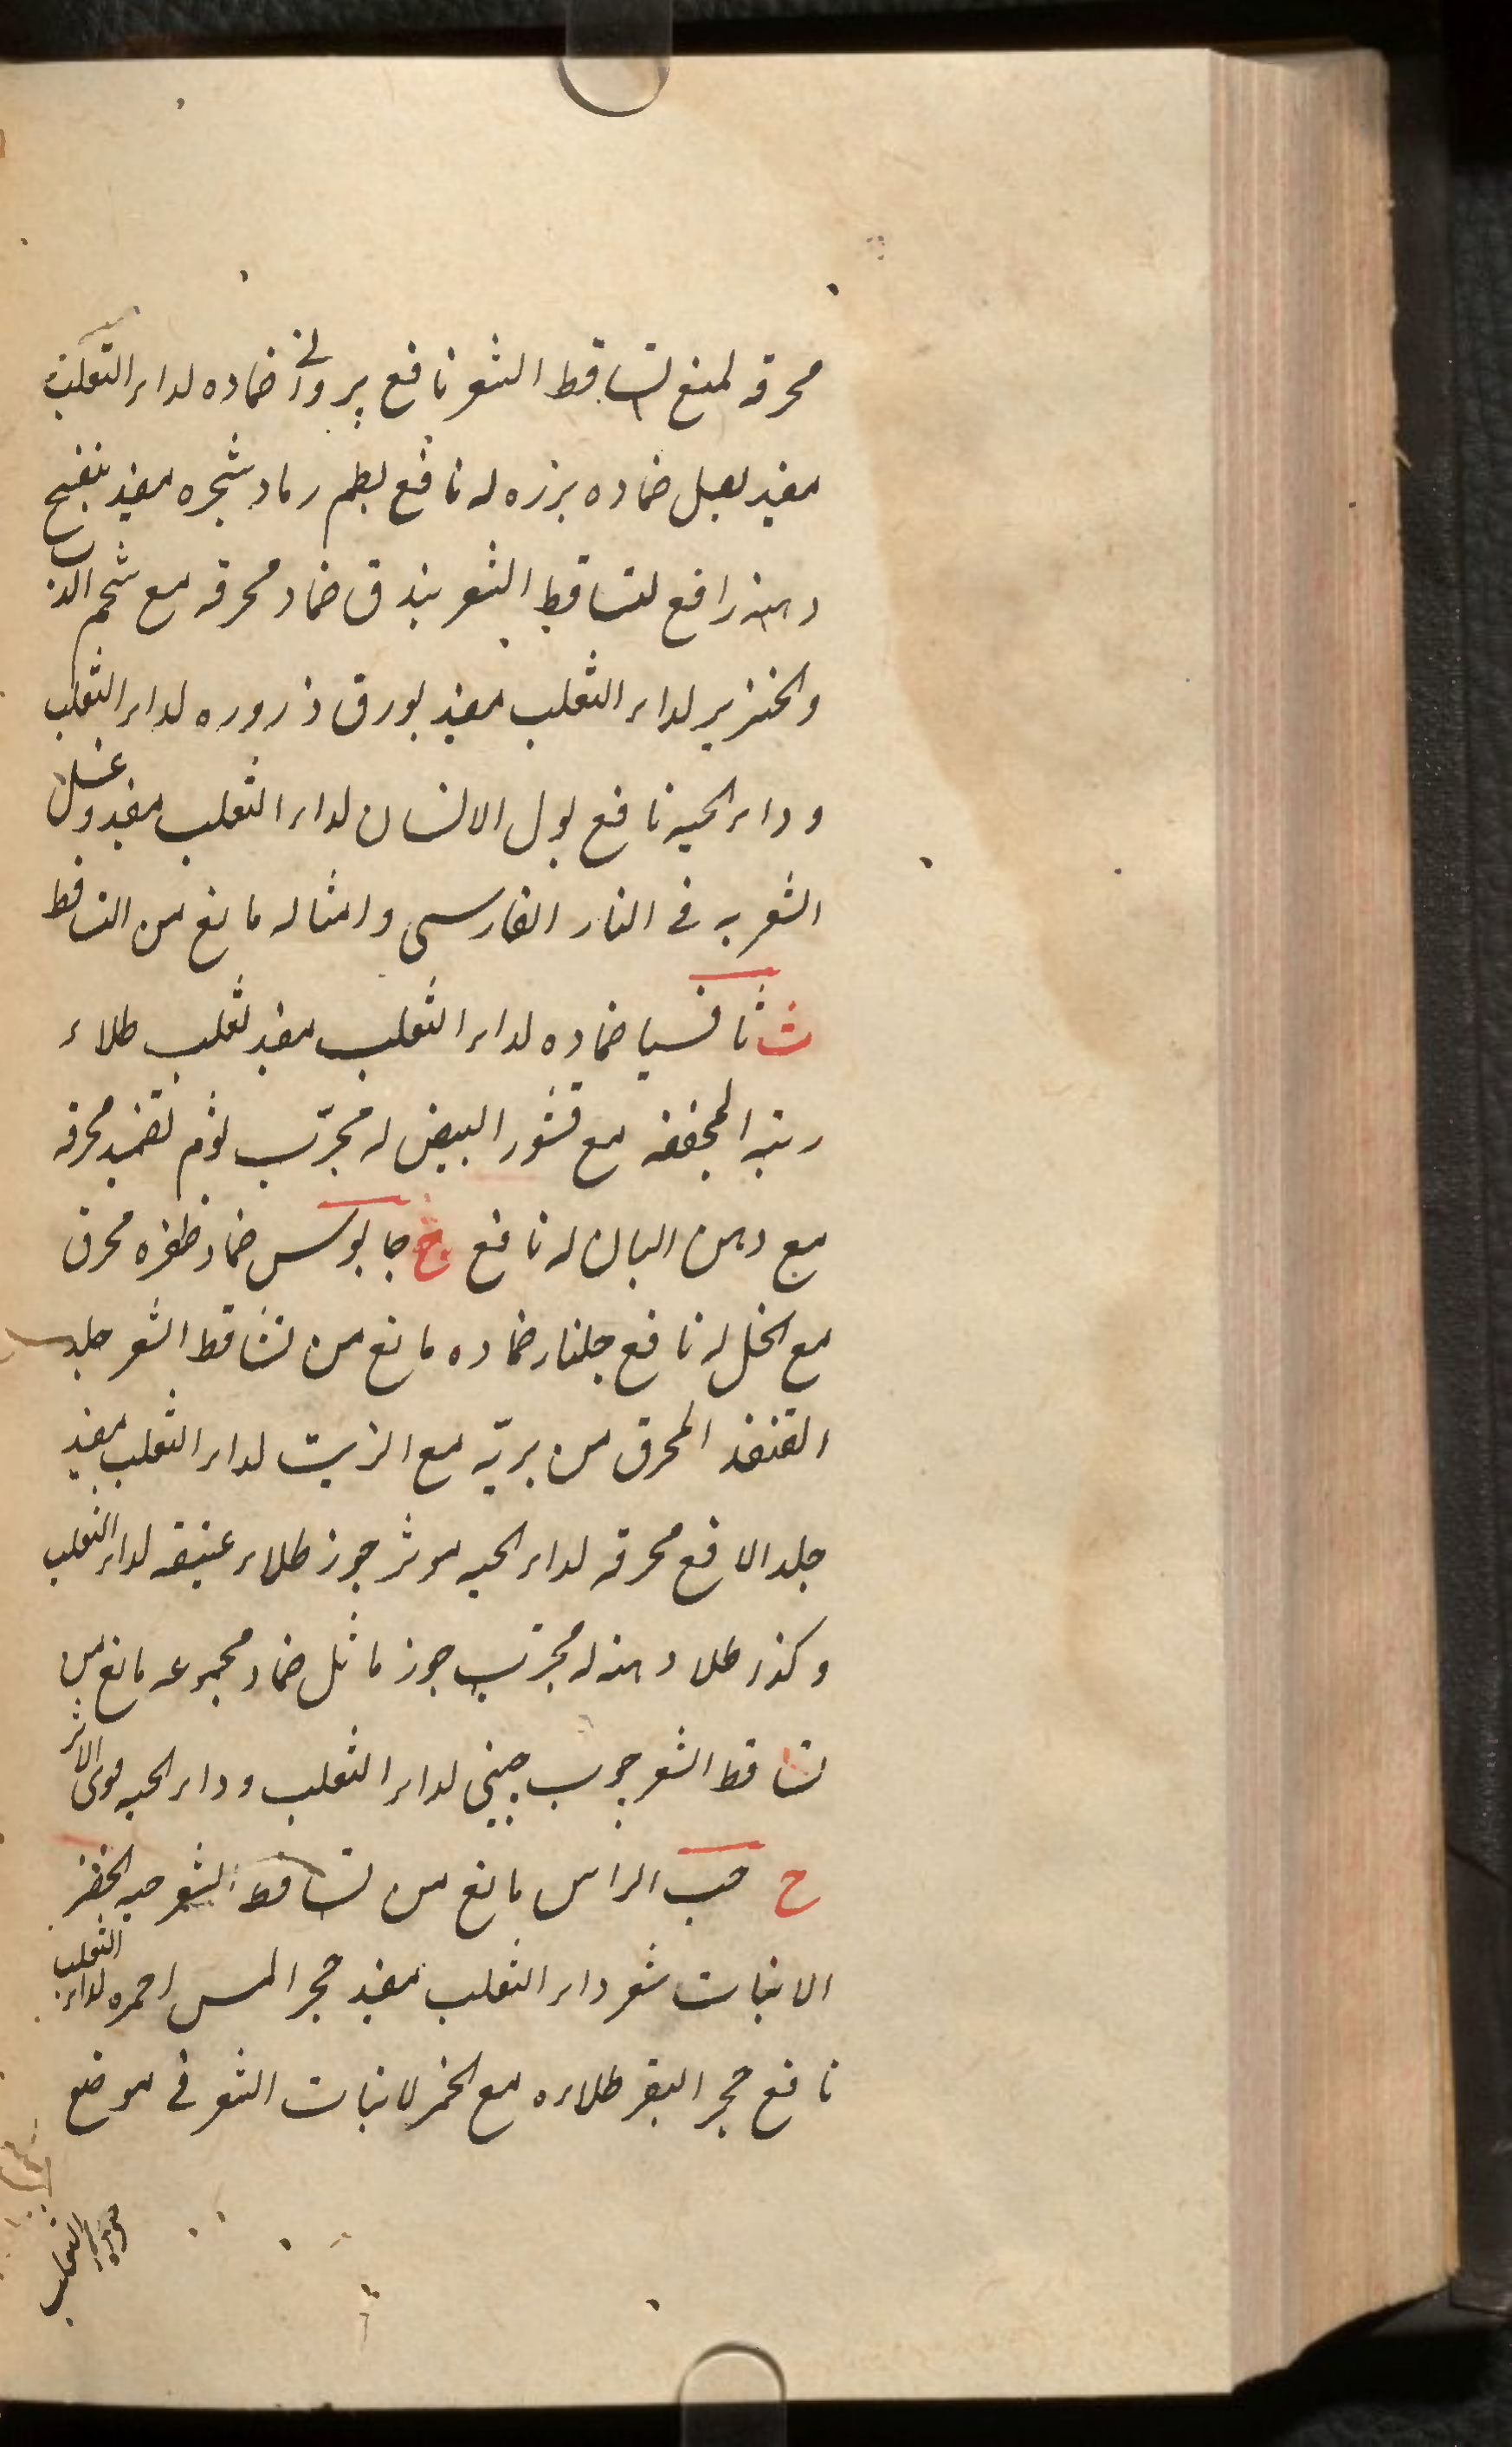 محرقه لمنع تساقط الشعر نافع بروانی ضماده لداء الثعلب
مفید بصل ضماده بزره له نافع بطم رماد شجره مفید بنفسج
دهنه رافع لتساقط الشعر بندق ضماد محرقه مع شحم الدب
والخنزیر لداء الثعلب مفید بورق ذروره لداء الثعلب
وداء الحیه نافع بول الانسان لداء الثعلب مفید وغسل
الشعر به فی النار الفارسی وامثاله مانع من التساقط
ث ثافسیا ضماده لداء الثعلب مفید ثعلب طلاء
ریته المجففه مع قشور البیض له مجرّب ثوم تضمید محرقه
مع دهن البان له نافع ج جابوس ضماد ظفره محرق
مع الخل له نافع جلنار ضماده مانع من تساقط الشعر جلد
القنفذ المحرق من بریّه مع الزیت لداء الثعلب مفید
جلد الافع محرقه لداء الحیه موثر جوز طلاء عتیقه لداء الثعلب
وکذا طلا دهنه له مجرّب جوز ماثل ضماد مجموعه مانع من
تساقط الشعر جوب چینی لداء الثعلب وداء الحیه قوی الاثر
ح حب الراس مانع من تساقط الشعر حبه الخضر
الانبات شعر داء الثعلب مفید حجر المس احمره لداء الثعلب
نافع حجر البقر طلاءه مع الخمر لانبات الشعر فی موضع
الثعلب